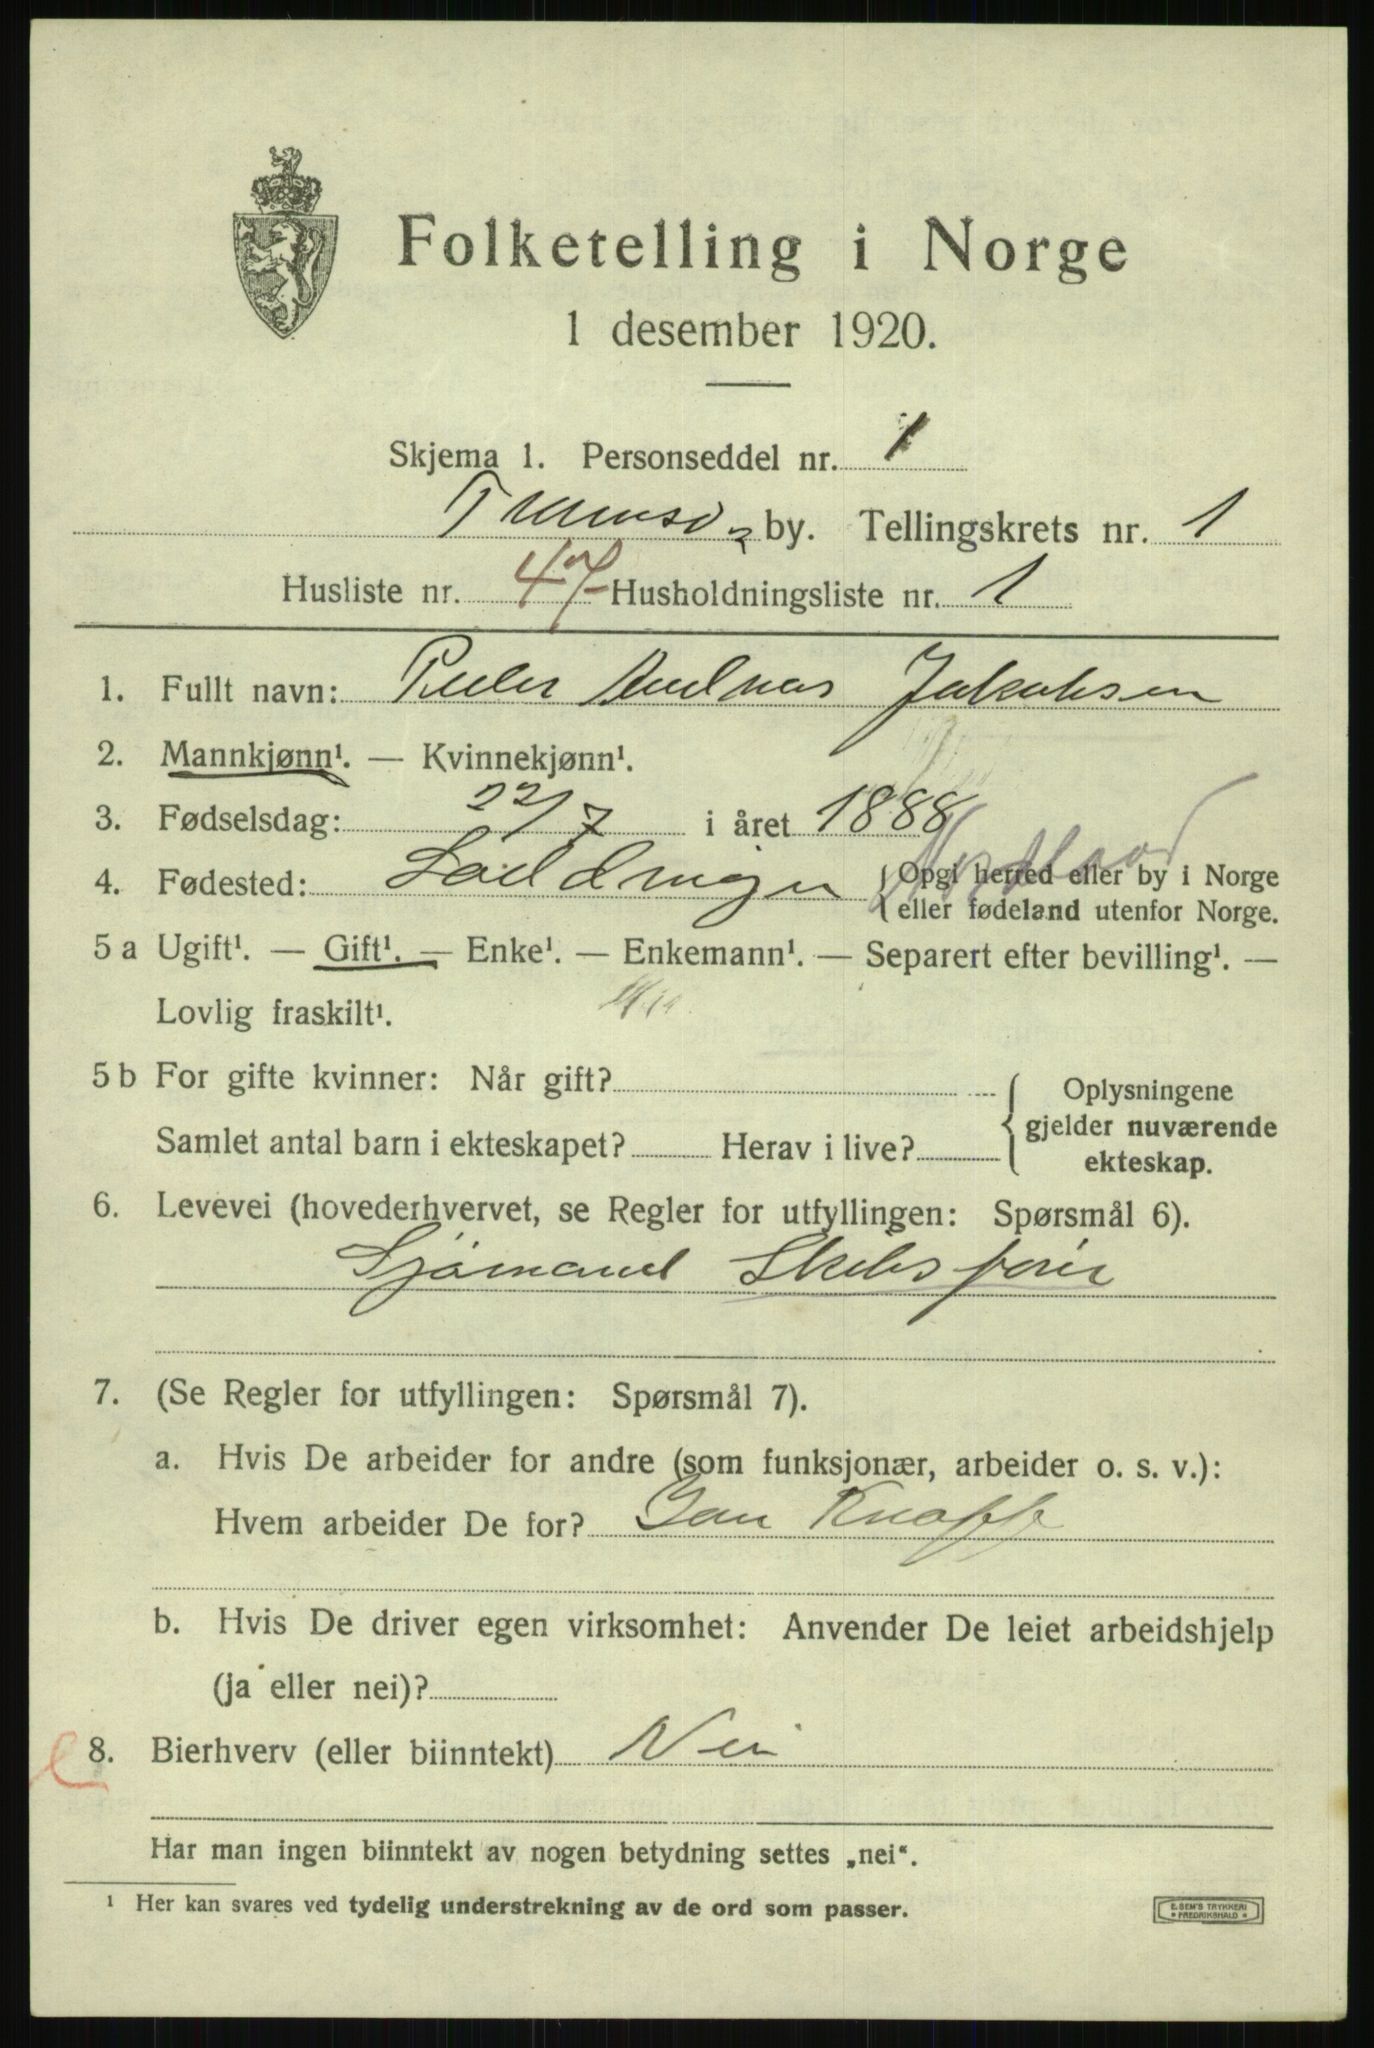 Folketelling i Norge
1 desember 1920.
Skjema 1. Personseddel nr. 1
Tromsø by. Tellingskrets nr. 1
Husliste nr. 47 Husholdningsliste nr. 1
1. Fullt navn: Peder Andreas Jakobsen
2. Mannkjønn¹. — Kvinnekjønn¹.
3. Fødselsdag: 22/7 i året 1888
4. Fødested: Lødingen { Opgi herred eller by i Norge
eller fødeland utenfor Norge.
Nordland
5 a Ugift¹. — Gift¹. — Enke¹. — Enkemann¹. — Separert efter bevilling¹. —
Lovlig fraskilt¹.
5 b For gifte kvinner: Når gift?
Samlet antal barn i ekteskapet? Herav i live?
{ Oplysningene
gjelder nuværende
ekteskap.
6. Levevei (hovederhvervet, se Regler for utfyllingen: Spørsmål 6).
Sjømand Skibsfører
7. (Se Regler for utfyllingen: Spørsmål 7).
a. Hvis De arbeider for andre (som funksjonær, arbeider o. s. v.):
Hvem arbeider De for? Jan Knoff
b. Hvis De driver egen virksomhet: Anvender De leiet arbeidshjelp
(ja eller nei)?
8. Bierhverv (eller biinntekt) Nei
Har man ingen biinntekt av nogen betydning settes „nei“.
¹ Her kan svares ved tydelig understrekning av de ord som passer.
E. SEM'S TRYKKERI
FREDRIKSHALD